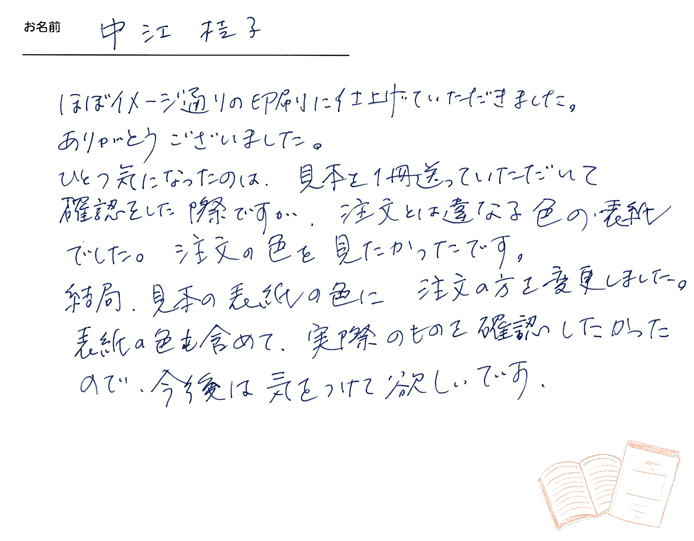 お名前 中江 桂子
ほぼイメージ通りの印刷に仕上げていただきました。
ありがとうございました。
ひとつ気になったのは、見本を1冊送っていただいて
確認をした際ですが、注文とは違なる色の表紙
でした。注文の色を見たかったです。
結局、見本の表紙の色に 注文の方を変更しました。
表紙の色も含めて、実際のものを確認したかった
ので、今後は気をつけて欲しいです.